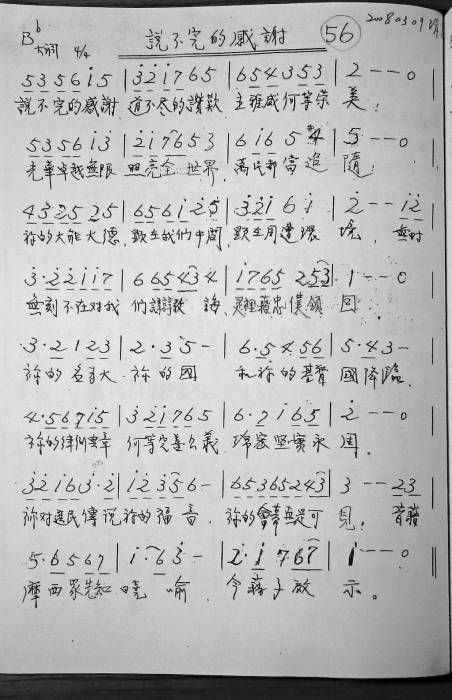 B♭ 大調 4/4 說不完的感謝 56 20080309
5 3 5 6 i 5 | 3 2 1 7 6 5 | 6 5 4 3 5 3 | 2 - - 0
說不完的感謝 道不盡的讚歎 主雅威何等榮美!
5 3 5 6 i 3 | 2 i 7 6 5 3 | 6 i 6 5 #4 | 5 - - 0
光華卓越無限 照亮全世界 萬民都當追隨
4 3 2 5 2 5 | 6 5 6 i 2 5 | 3 2 i 6 i | 2 - - i 2
祢的大能大德 顯在我們中間 顯在周遭環境 無時
3 · 2 2 i i 7 | 6 6 5 4 3 4 | i 7 6 5 2 5 3 | 1 - - 0
無刻不在對我 們 忠僕領回
3 · 2 1 2 3 | 2 · 3 5 - | 6 · 5 4 5 6 | 5 · 4 3 -
祢的名 大 祢的國 和祢的基督國降臨
4 · 5 6 7 i 5 | 3 2 1 7 6 5 | 6 · 7 i 6 5 | 2 - - 0
祢的律例典章 何等完善公義 堅實永固
3 2 i 6 3 · 2 | i 2 3 5 6 - | 6 5 3 6 5 2 4 3 | 3 - - 2 3
祢對選民傳說祢的福音 祢的會幕 可見! 昔藉
5 · 6 5 6 7 | i · 6 3 - | 2 · i 7 6 7 | i - - 0
摩西眾先知曉喻 今藉子啟示。